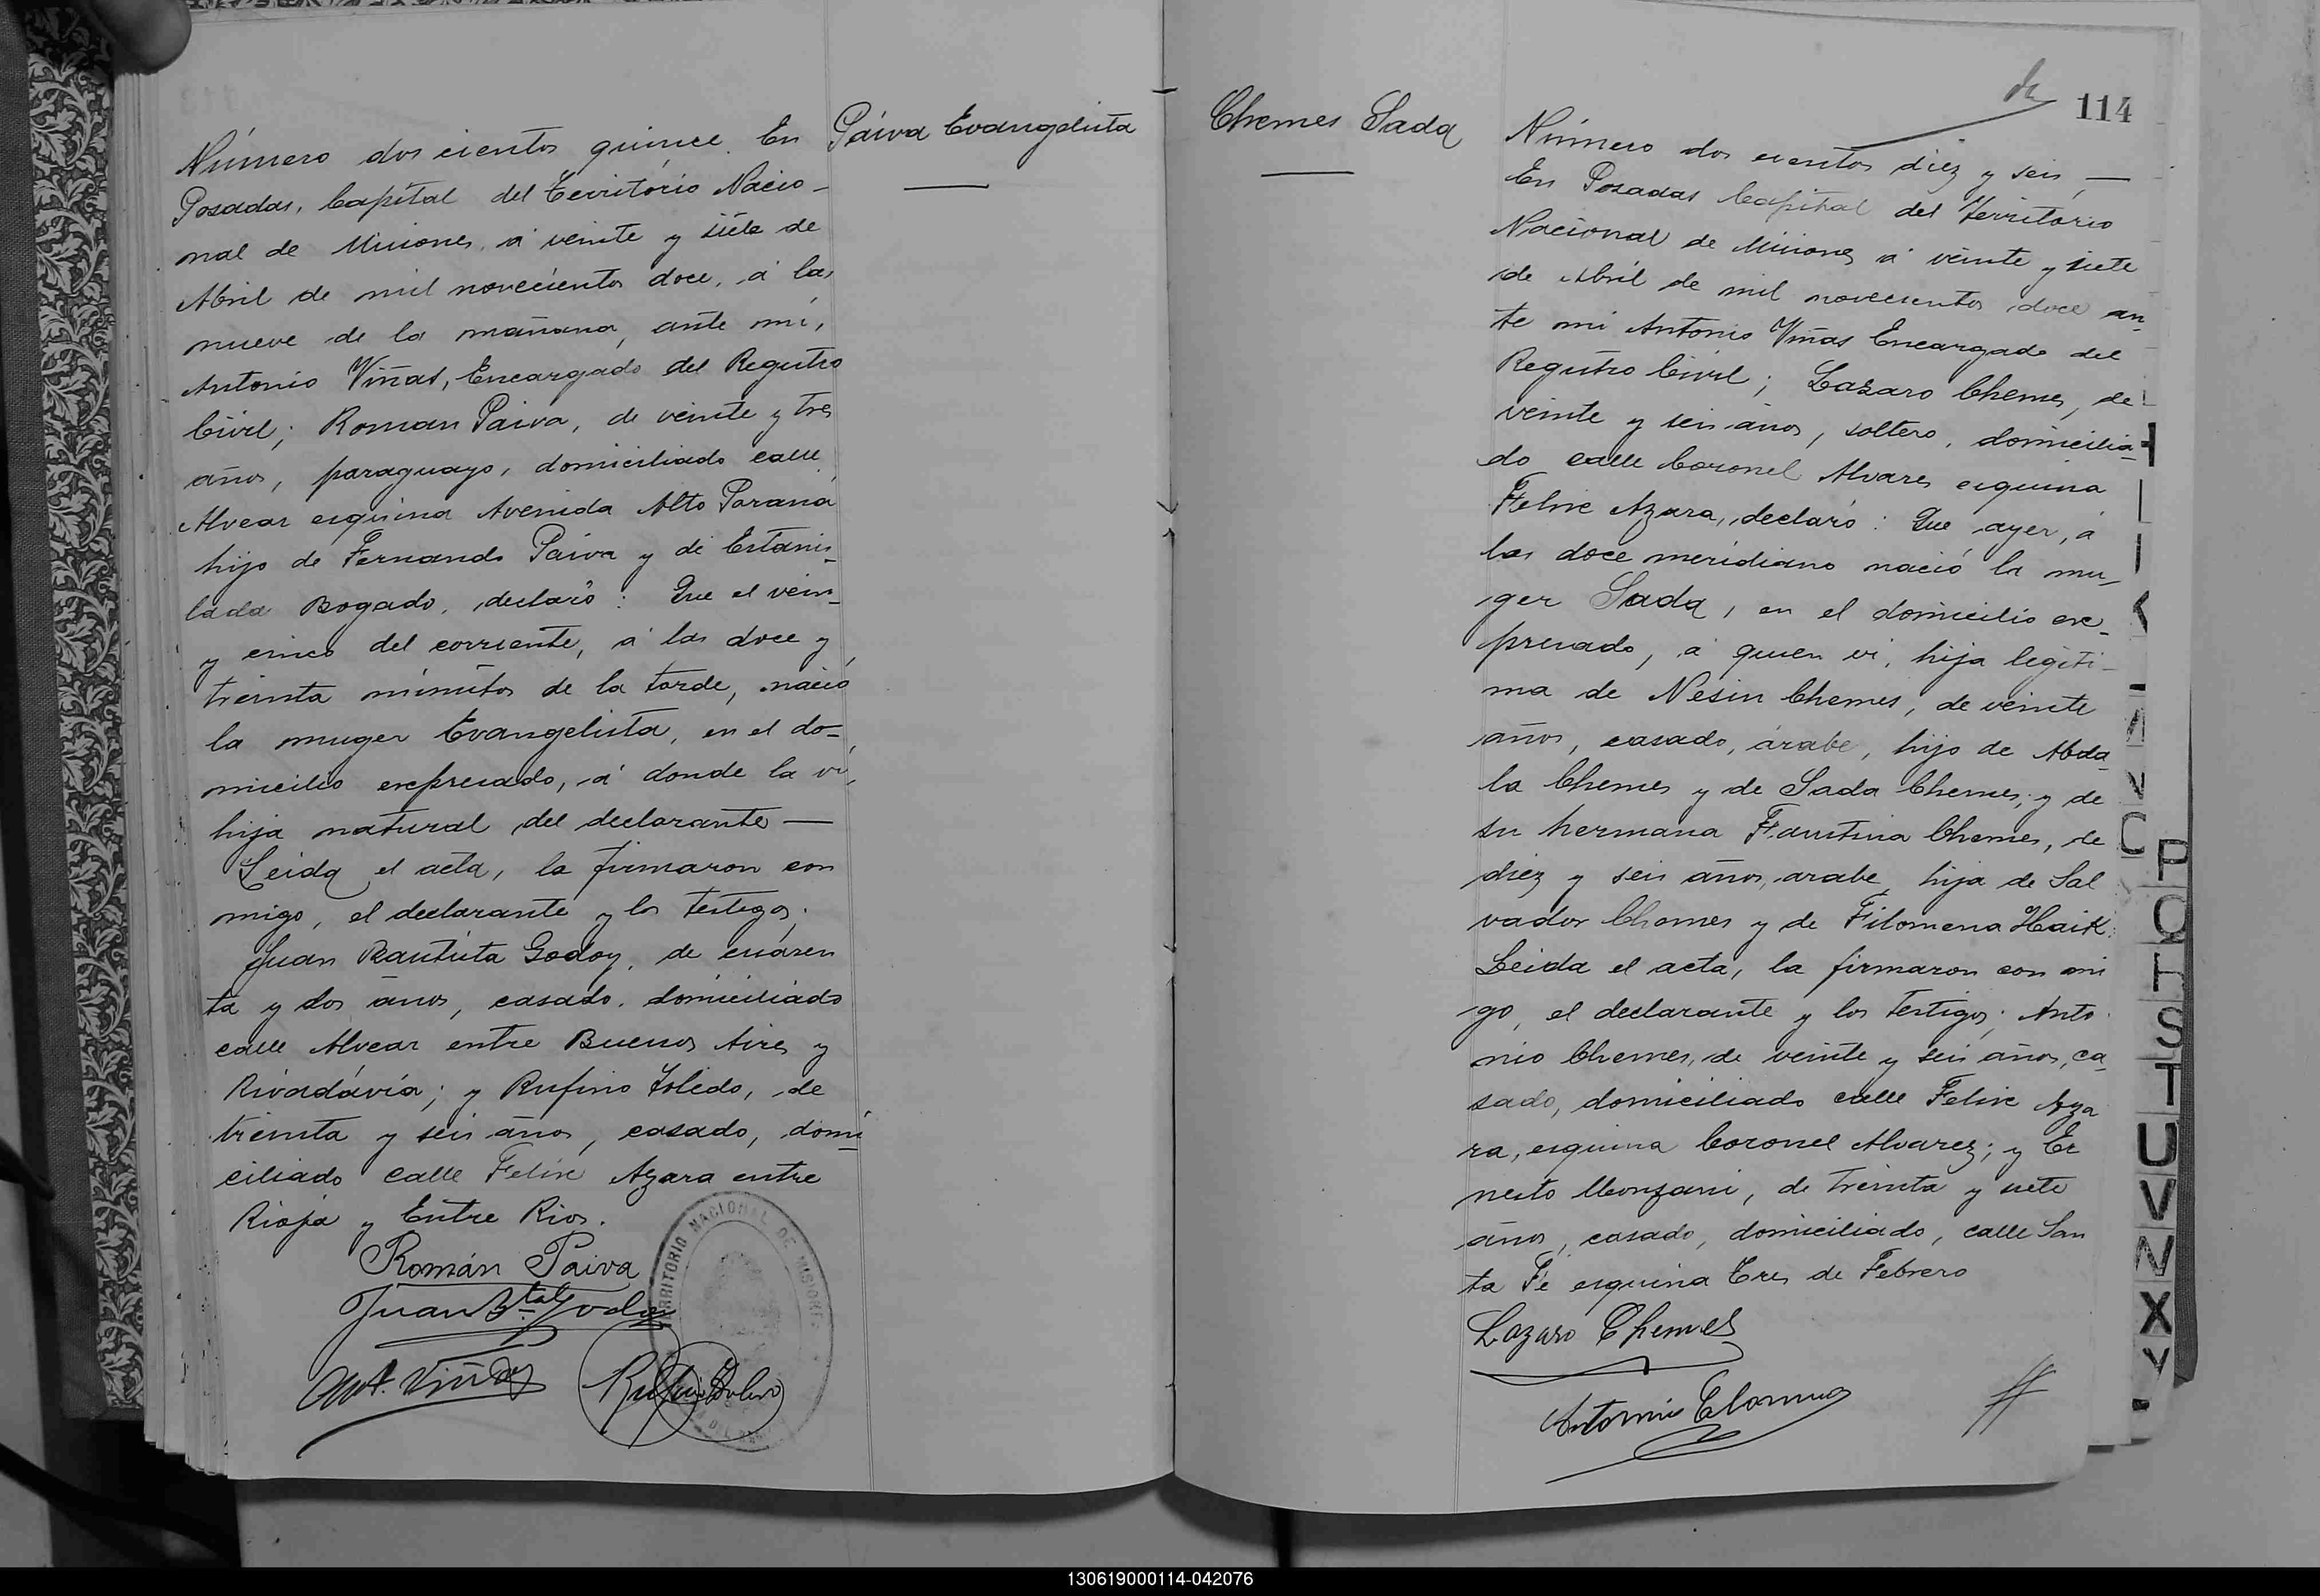 Número dos cientos quince. En
Posadas, Capital del Territorio Nacio-
nal de Misiones, á veinte y siete de
Abril de mil novecientos doce, á las
nueve de la mañana, ante mi,
Antonio Viñas, Encargado del Registro
Civil; Roman Paiva, de veinte y tres
años, paraguayo, domiciliado calle
Alvear esquina Avenida Alto Paraná
hijo de Fernando Paiva y de Estanis-
lada Bogado, declaró: Que el vein-
y cinco del corriente, á las doce y
treinta minutos de la tarde, nació
la muger Evangelista, en el do-
micilio expresado, á donde la vi,
hija natural del declarante —
Leida el acta, la firmaron con
migo, el declarante y los testigos;
Juan Bautista Godoy, de cuaren
ta y dos años, casado, domiciliado
calle Alvear entre Buenos Aires y
Rivadávia; y Rufino Toledo, de
treinta y seis años, casado, domi-
ciliado calle Felix Azara entre
Rioja y Entre Rios.
Román Paiva
Juan Bta Godoy
Ant. Viñas
TERRITORIO NACIONAL DE MISIONES
Paiva Evangelista
Chemes Sada
114
Número dos cientos diez y seis —
En Posadas Capital del Territorio
Nacional de Misiones á veinte y siete
de Abril de mil novecientos doce an-
te mi Antonio Viñas Encargado del
Registro Civil; Lazaro Chemes, de
veinte y seis años, soltero, domicilia-
do calle Coronel Alvares esquina
Felix Azara, declaró: Que ayer, á
las doce meridiano nació la mu-
ger Sada, en el domicilio ex-
presado, á quien vi, hija legiti-
ma de Nesin Chemes, de veinte
años, casado, árabe, hijo de Abda-
la Chemes y de Sada Chemes; y de
su hermana Faustina Chemes, de
diez y seis años, arabe, hija de Sal
vador Chemes y de Filomena Haik.
Leida el acta, la firmaron con mi
go, el declarante y los testigos; Anto
nio Chemes, de veinte y seis años, ca-
sado, domiciliado calle Felix Aza
ra, esquina Coronel Alvarez; y Er
nesto Monzani, de treinta y siete
años, casado, domiciliado, calle San
ta Fé esquina Tres de Febrero
Lazaro Chemes
Antonio
P
Q
S
T
U
V
X
Y
130619000114-042076